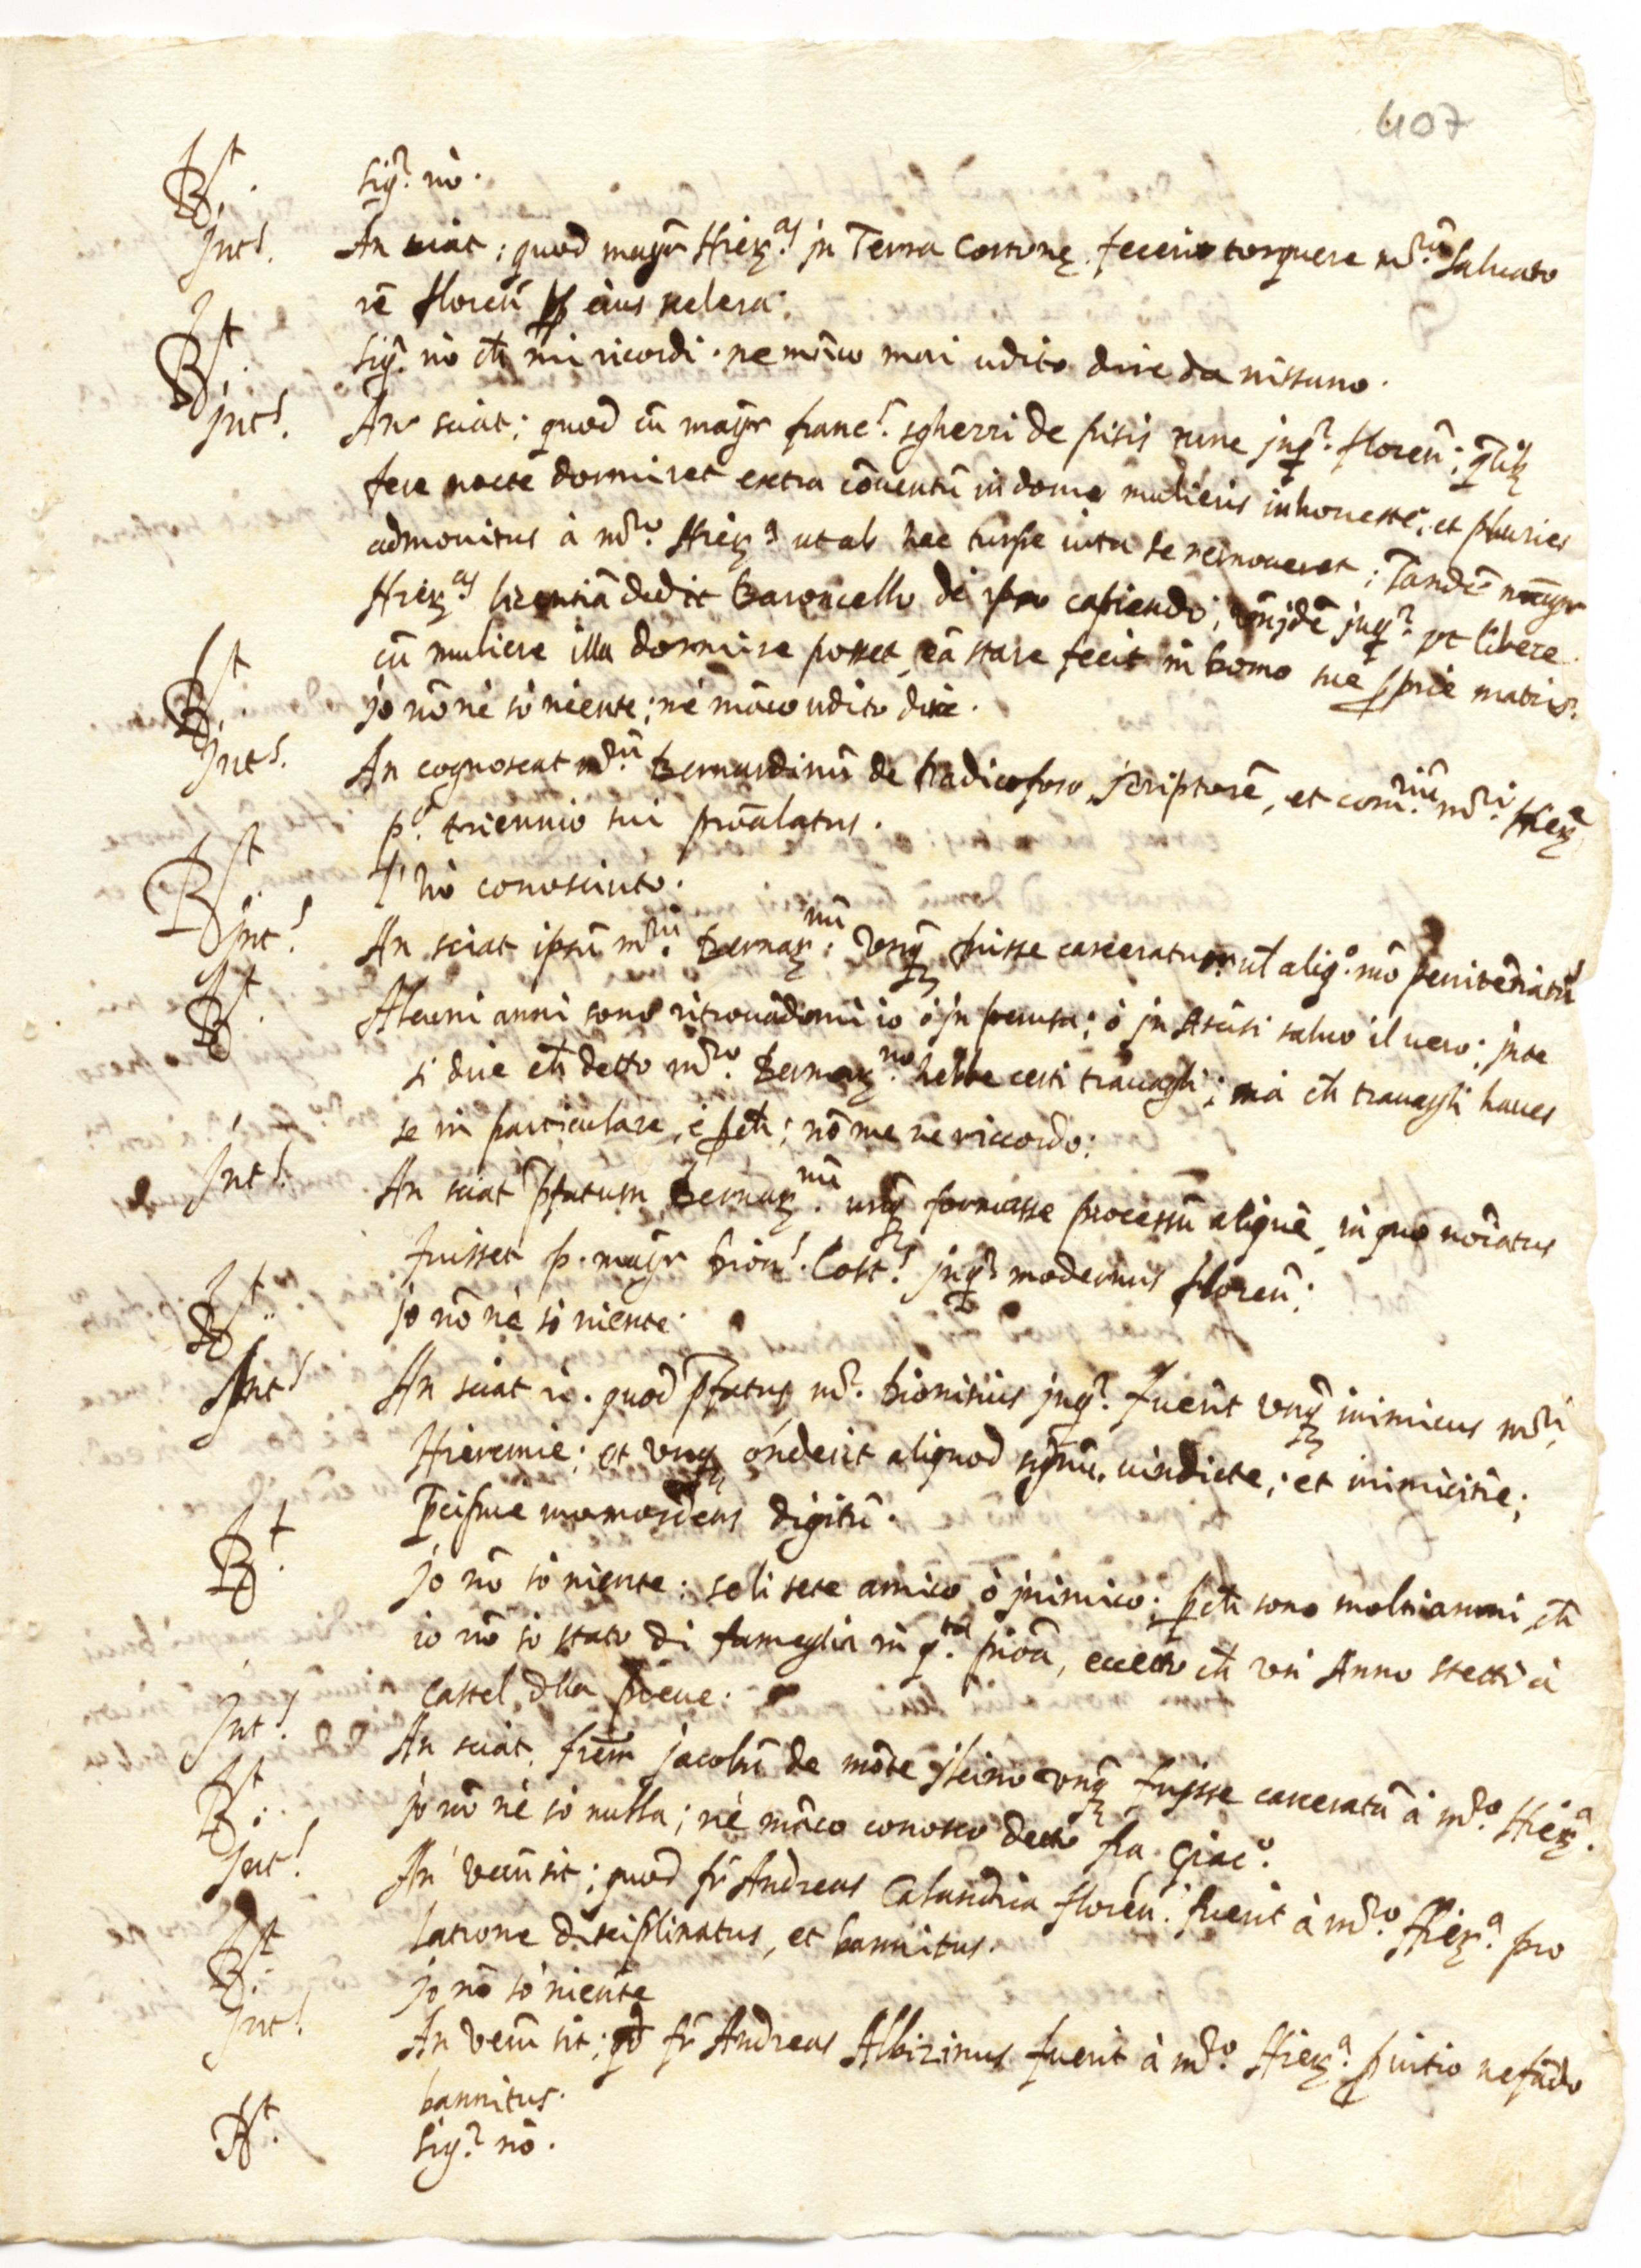 407
R.t Sig.r nò.
Int.s An sciat; quod mag.r Hier.as in Terra Cortone fecerit torquere m.rũ Saluato
rẽ florenũ ꝑ eius scelera.
R.t Sig.r nò ch̃ mi ricordi. ne mãco mai udito dire da nissuno.
Int.s An sciat; quod cũ mag.r franc.s sgherri de pisis tunc inq.r florenũ;
fere nocte dormiret extra cõuentũ in domo mulieris inhoneste, et pluries
admonitus à m.ro Hier.a ut ab hac turpe uita se remoueret; Tandẽ mag.r
Hier.as licentiã dedit Baroncello de ipso capiendo; inq.r ut libere
cũ muliere illa dormire posset, eã stare fecit in domo sue ꝓprie matris.
R.t Io nõ nè sò niente; nè mãco udito dire.
Int.s An cognoscat m.rũ Bernardinũ de Radicofono, scriptorẽ, et m.ri Hier.e
p.o triennio sui prouĩalatus.
R.t l'hò conosciuto.
Int.s An sciat ipsũ m.rũ Bernar.nũ vnq̃ fuisse carceratum ul̃ aliq.o mõ penitẽtiatũ
R.t Alcuni anni sono ritrouãdomi io ò in perusa; ò in Ascisi saluo il uero; inte
si dire ch̃ detto m.ro Bernar.no hebbe certi trauagli; mà ch̃ trauagli haues
se in particulare, è ꝑch̃; nõ me ne riccordo:
Int.s An sciat p̃fatum Bernar.nũ unq̃ formasse processũ aliquẽ, in quo noĩatus
fuisset p. mag.r Dion.s Cost.s inq.r modernus florenũ:
R.t Io nõ nè sò niente.
Int.s An sciat quod p̃fatus m.r Dionisius inq.r fuerit vnq̃ inimicus m.ri
Hieremie; et vnq̃ õnderit aliquod signũ, uindicte; et inimicitie;
p̃cipue mordens digitũ.
R.t Io nõ sò niente: se li sete amico ò inimico; ꝑch̃ sono molti anni ch̃
io nõ sò stato di fameglia in q.ta prouã, eccetto ch̃ vn Anno stetti à
Castel dlla pieue.
Int.s An sciat, frẽm Jacobũ de mõte Ilcino vnq̃ fuisse carceratũ à m.ro Hier.a.
R.t Io nõ nè sò nulla; nè mãco conosco detto fra Giac.o.
Int.s An verũ sit; quod fr̃ Andreas Calandria florenũ. fuerit à m.ro Hier.a pro
latrone disciplinatus, et bannitus.
R.t Io nõ sò niente
Int.s An verũ sit; qd fr̃ Andreas Albizinus fuerit à m.ro Hier.a ꝑ uitio nefãdo
bannitus.
R.t Sig.r nõ.